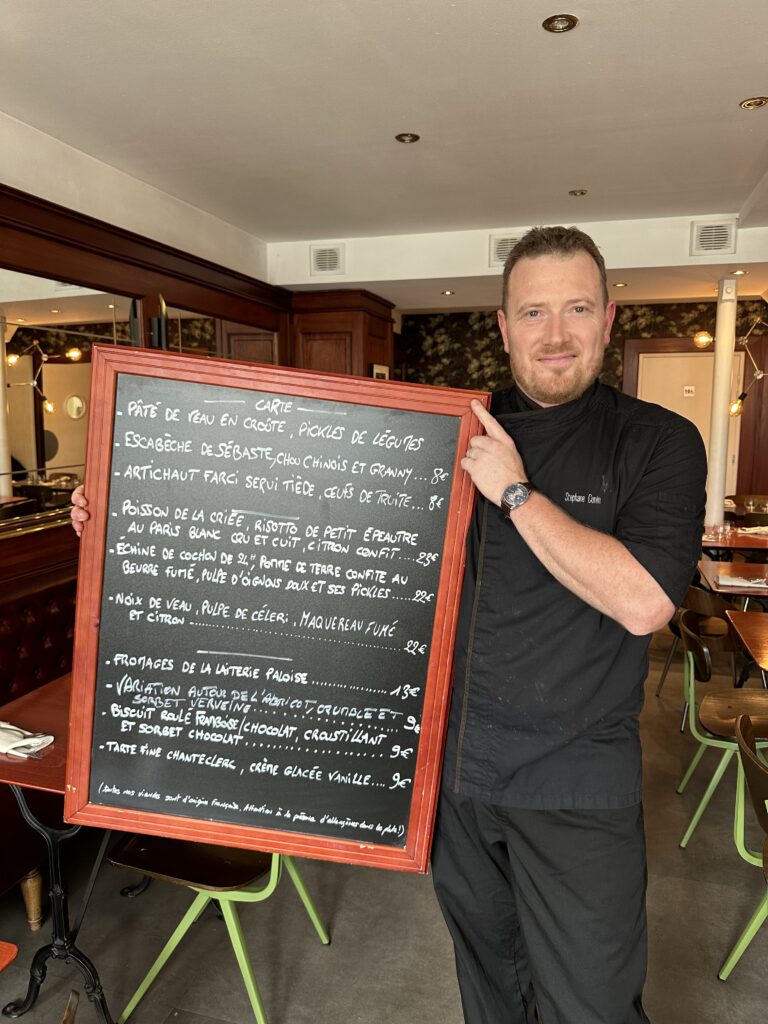 CARTE
- PÂTÉ DE VEAU EN CROÛTE, PICKLES DE LÉGUMES
- ESCABÈCHE DE SÉBASTE, CHOU CHINOIS ET GRANNY... 8€
- ARTICHAUT FARCI SERVI TIÈDE, ŒUFS DE TRUITE... 8€
- POISSON DE LA CRIÉE, RISOTTO DE PETIT ÉPEAUTRE
AU PARIS BLANC CRU ET CUIT, CITRON CONFIT....23€
- ÉCHINE DE COCHON DE 24H, POMME DE TERRE CONFITE AU
BEURRE FUMÉ, PULPE D'OIGNONS DOUX ET SES PICKLES.....22€
- NOIX DE VEAU, PULPE DE CÉLERI, MAQUEREAU FUMÉ
ET CITRON ........ 22€
- FROMAGES DE LA LAITERIE PALOISE .......... 13€
- VARIATION AUTOUR DE L'ABRICOT, CRUMBLE ET
SORBET VERVEINE ........ 9€
- BISCUIT ROULÉ FRAMBOISE/CHOCOLAT, CROUSTILLANT
ET SORBET CHOCOLAT ........ 9€
- TARTE FINE CHANTECLERC, CRÈME GLACÉE VANILLE... 9€
(toutes nos viandes sont d'origine Française, Attention à la présence d'allergènes dans les plats!)
Stephane